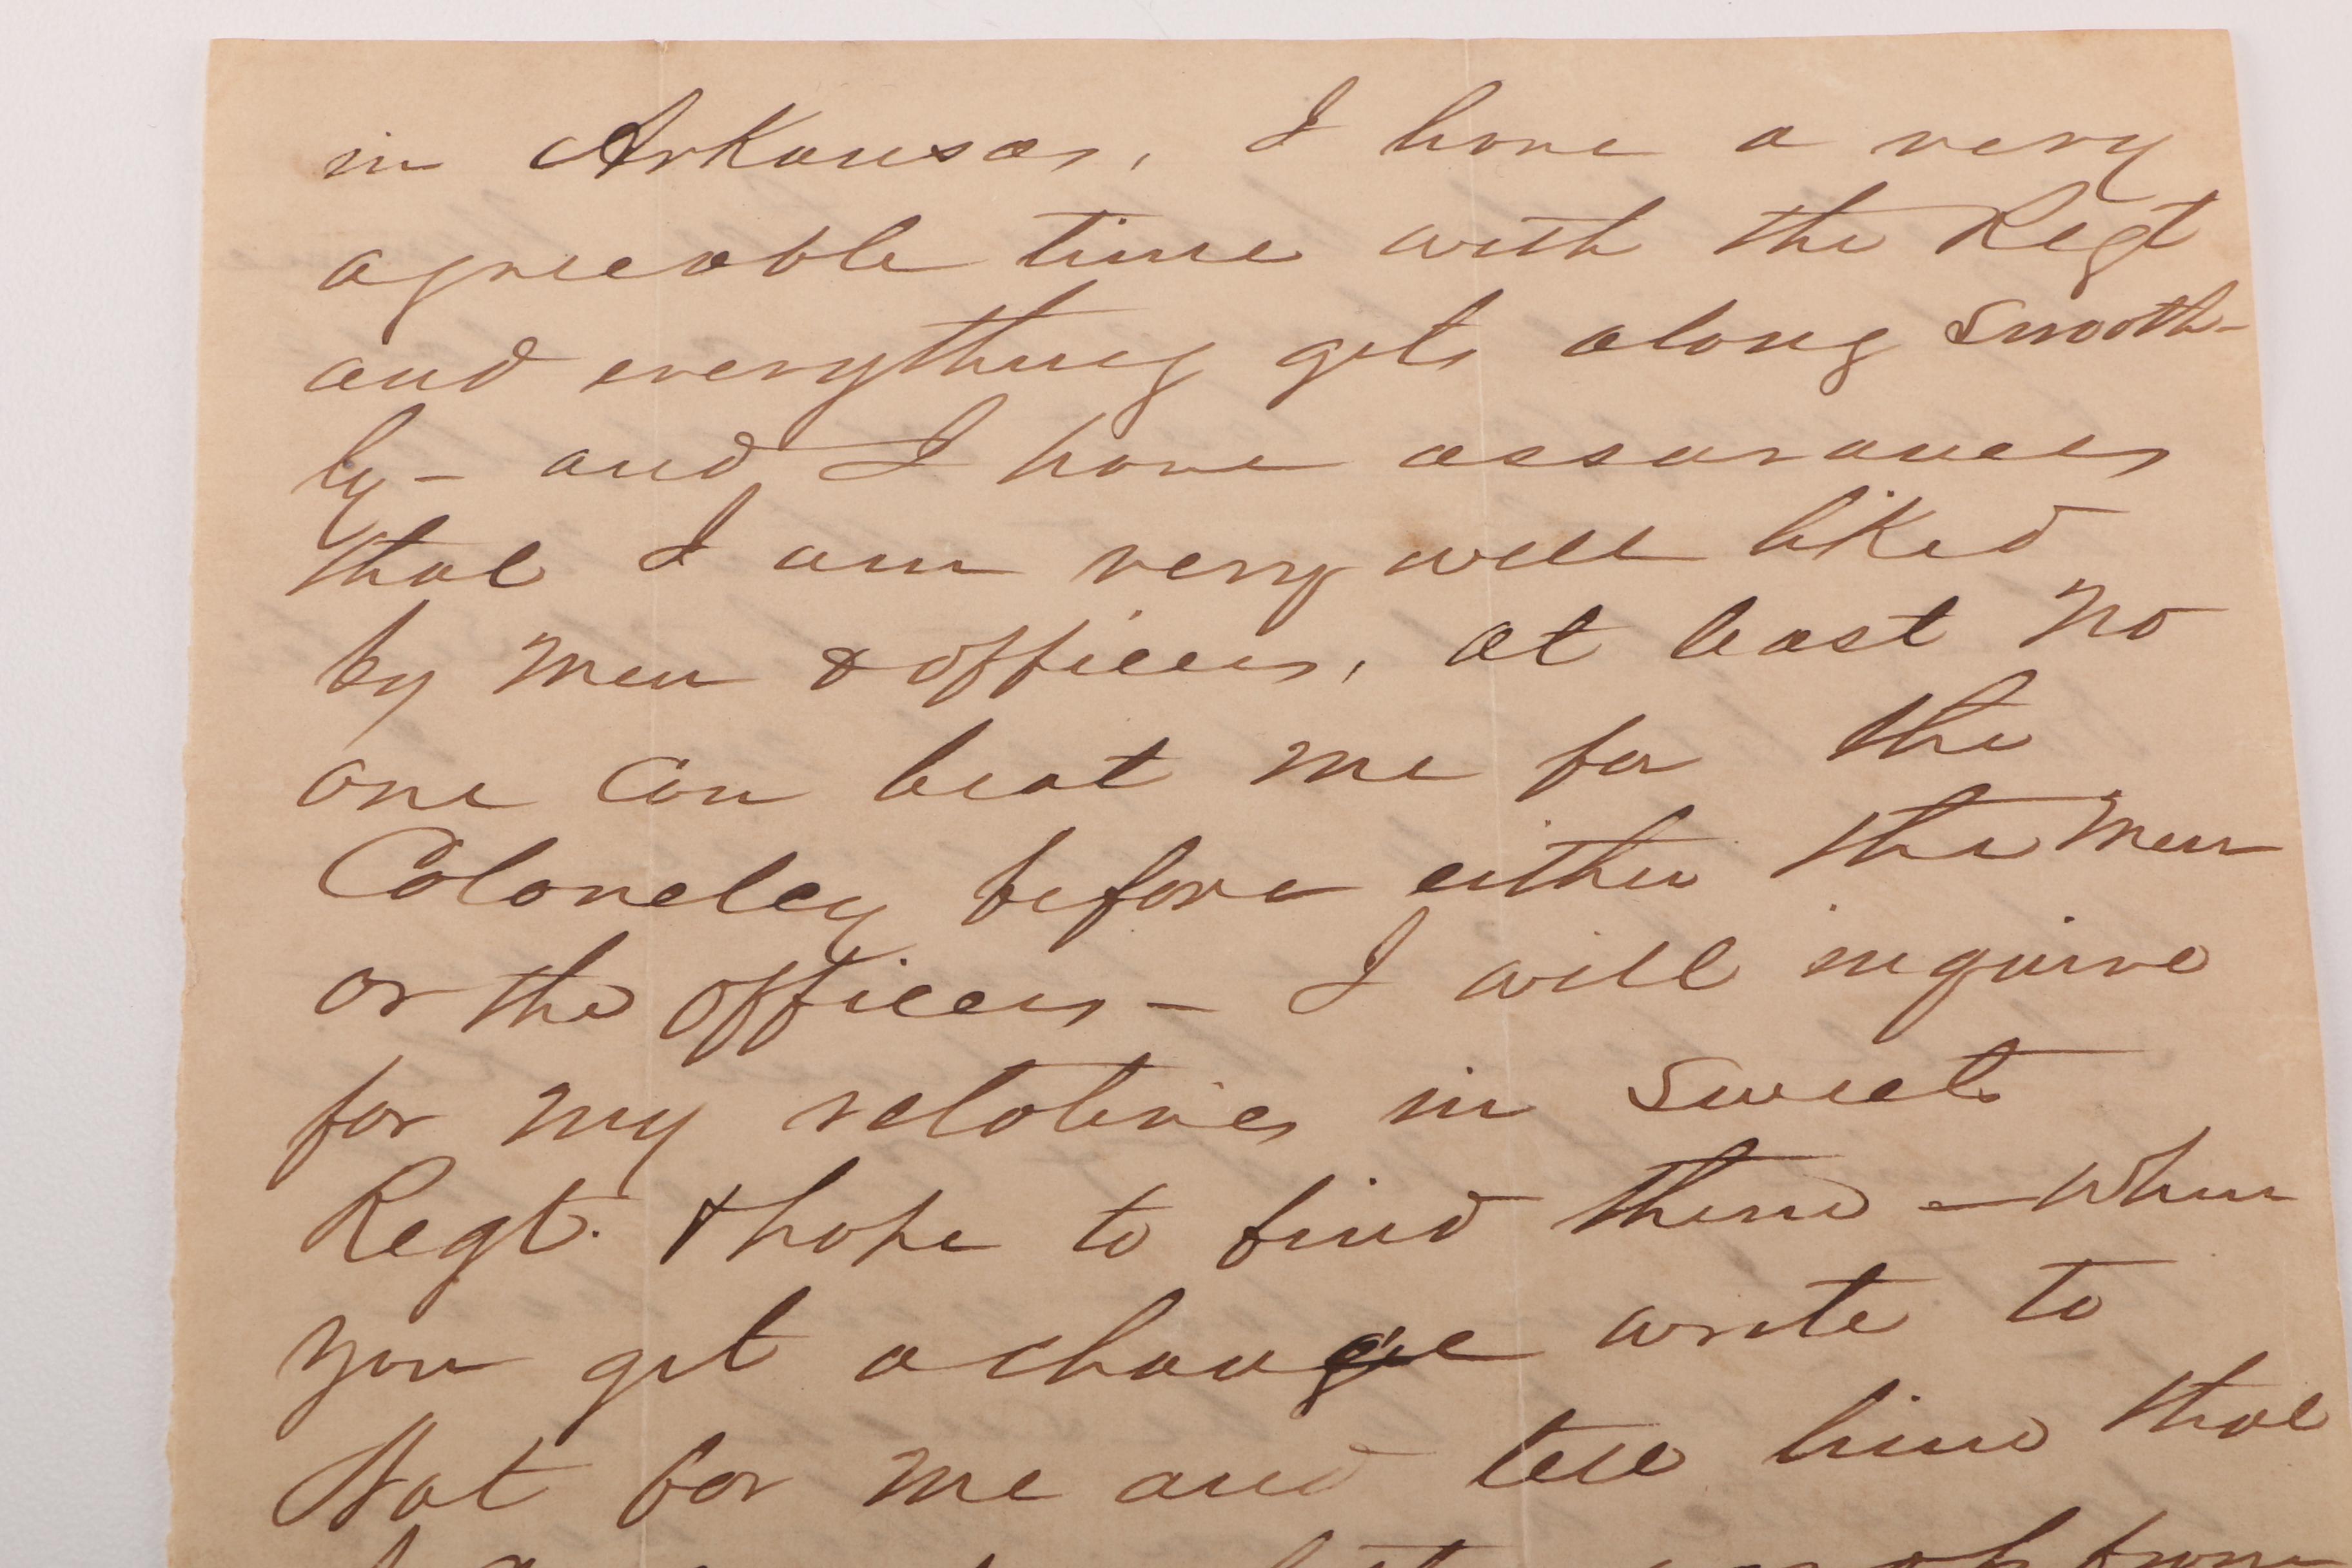 in Arkansas, I have a very
agreeable time with the Regt
and everything gets along smooth-
ly - and I have assurances
that I am very well liked
by men & officers, at least no
one can beat me for the
Coloneley before either the men
or the officers - I will inquire
for my relatives in Sweets
Regt. & hope to find them - When
you get a chance write to
Nat for me and tell him that